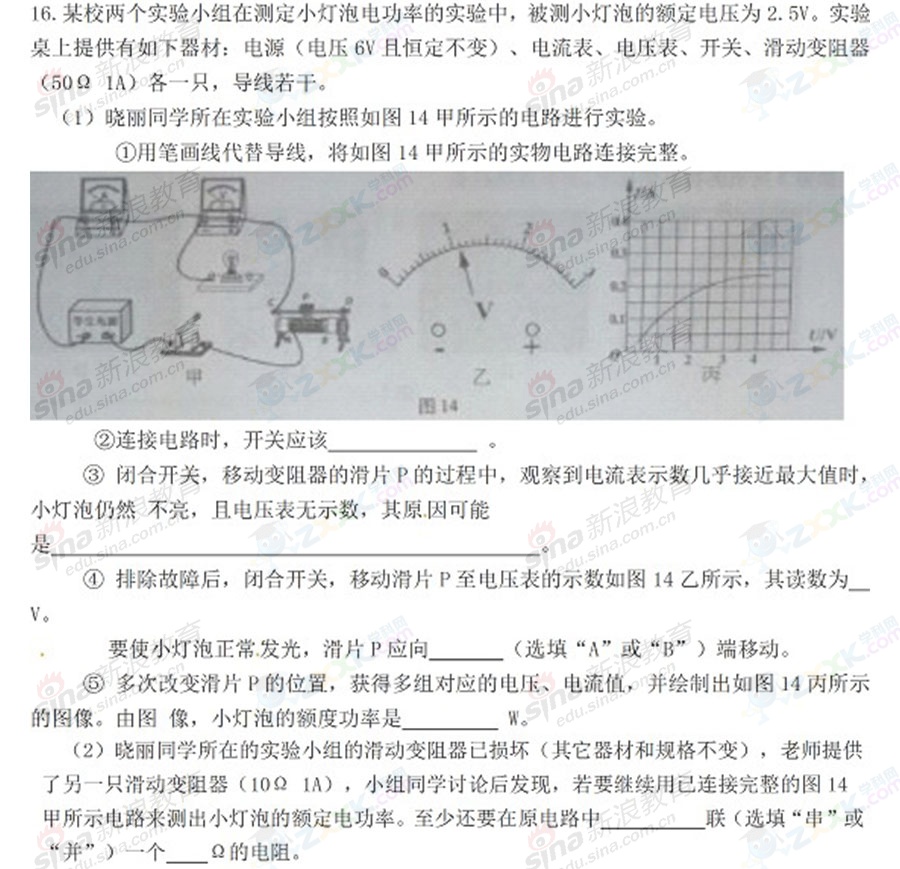 16.某校两个实验小组在测定小灯泡电功率的实验中，被测小灯泡的额定电压为 2.5V。实验
桌上提供有如下器材：电源（电压 6V 且恒定不变）、电流表、电压表、开关、滑动变阻器
（50Ω 1A）各一只，导线若干。
（1）晓丽同学所在实验小组按照如图 14 甲所示的电路进行实验。
①用笔画线代替导线，将如图 14 甲所示的实物电路连接完整。
甲
0 1 2 3
V
- +
乙
I/A
0.3
0.2
0.1
0 1 2 3 4 U/V
丙
图14
②连接电路时，开关应该 。
③ 闭合开关，移动变阻器的滑片 P 的过程中，观察到电流表示数几乎接近最大值时，
小灯泡仍然 不亮，且电压表无示数，其原因可能
是 。
④ 排除故障后，闭合开关，移动滑片 P 至电压表的示数如图 14 乙所示，其读数为
V。
要使小灯泡正常发光，滑片 P 应向 （选填“A”或“B”）端移动。
⑤ 多次改变滑片 P 的位置，获得多组对应的电压、电流值，并绘制出如图 14 丙所示
的图像。由图 像，小灯泡的额度功率是 W。
（2）晓丽同学所在的实验小组的滑动变阻器已损坏（其它器材和规格不变），老师提供
了另一只滑动变阻器（10Ω 1A），小组同学讨论后发现，若要继续用已连接完整的图 14
甲所示电路来测出小灯泡的额定电功率。至少还要在原电路中 联（选填“串”或
“并”）一个 Ω的电阻。
sina 新浪教育
edu.sina.com.cn
学科网
ZXXK.com